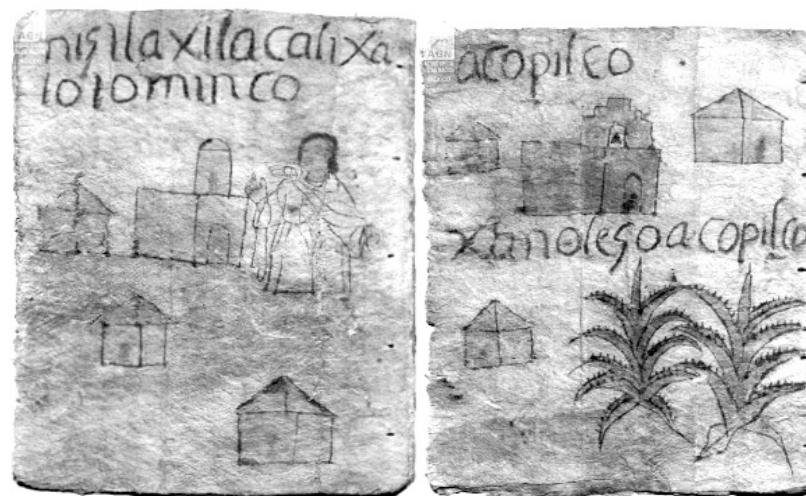 nisilaxilacalixa
lotominco
acopilco
xanolesoacopilco
AGN
AGN